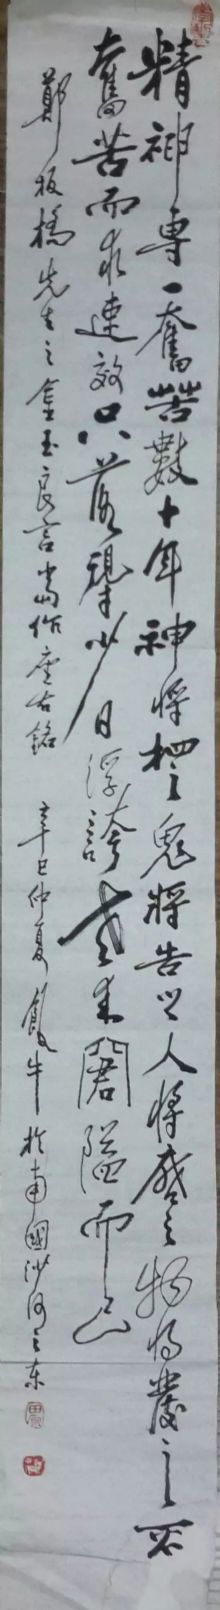 精神專一奮苦數十年神將相之鬼將告之人將啟之物將發之不
奮苦而求速效只落得少日浮誇老來窘隘而已
鄭板橋先生之金玉良言當作座右銘 辛巳仲夏 牛於南國沙河之東